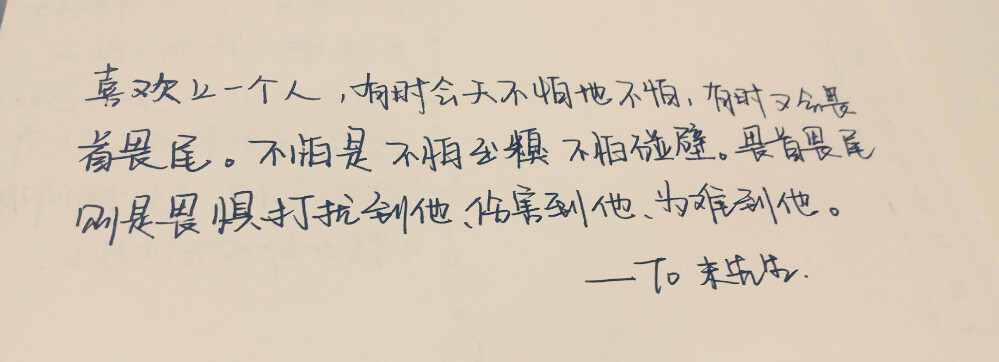 喜欢上一个人，有时会天不怕地不怕，有时又会畏
首畏尾。不怕是不怕出糗 不怕碰壁。畏首畏尾
则是畏惧打扰到他、伤害到他、为难到他。
——To 宋先生.